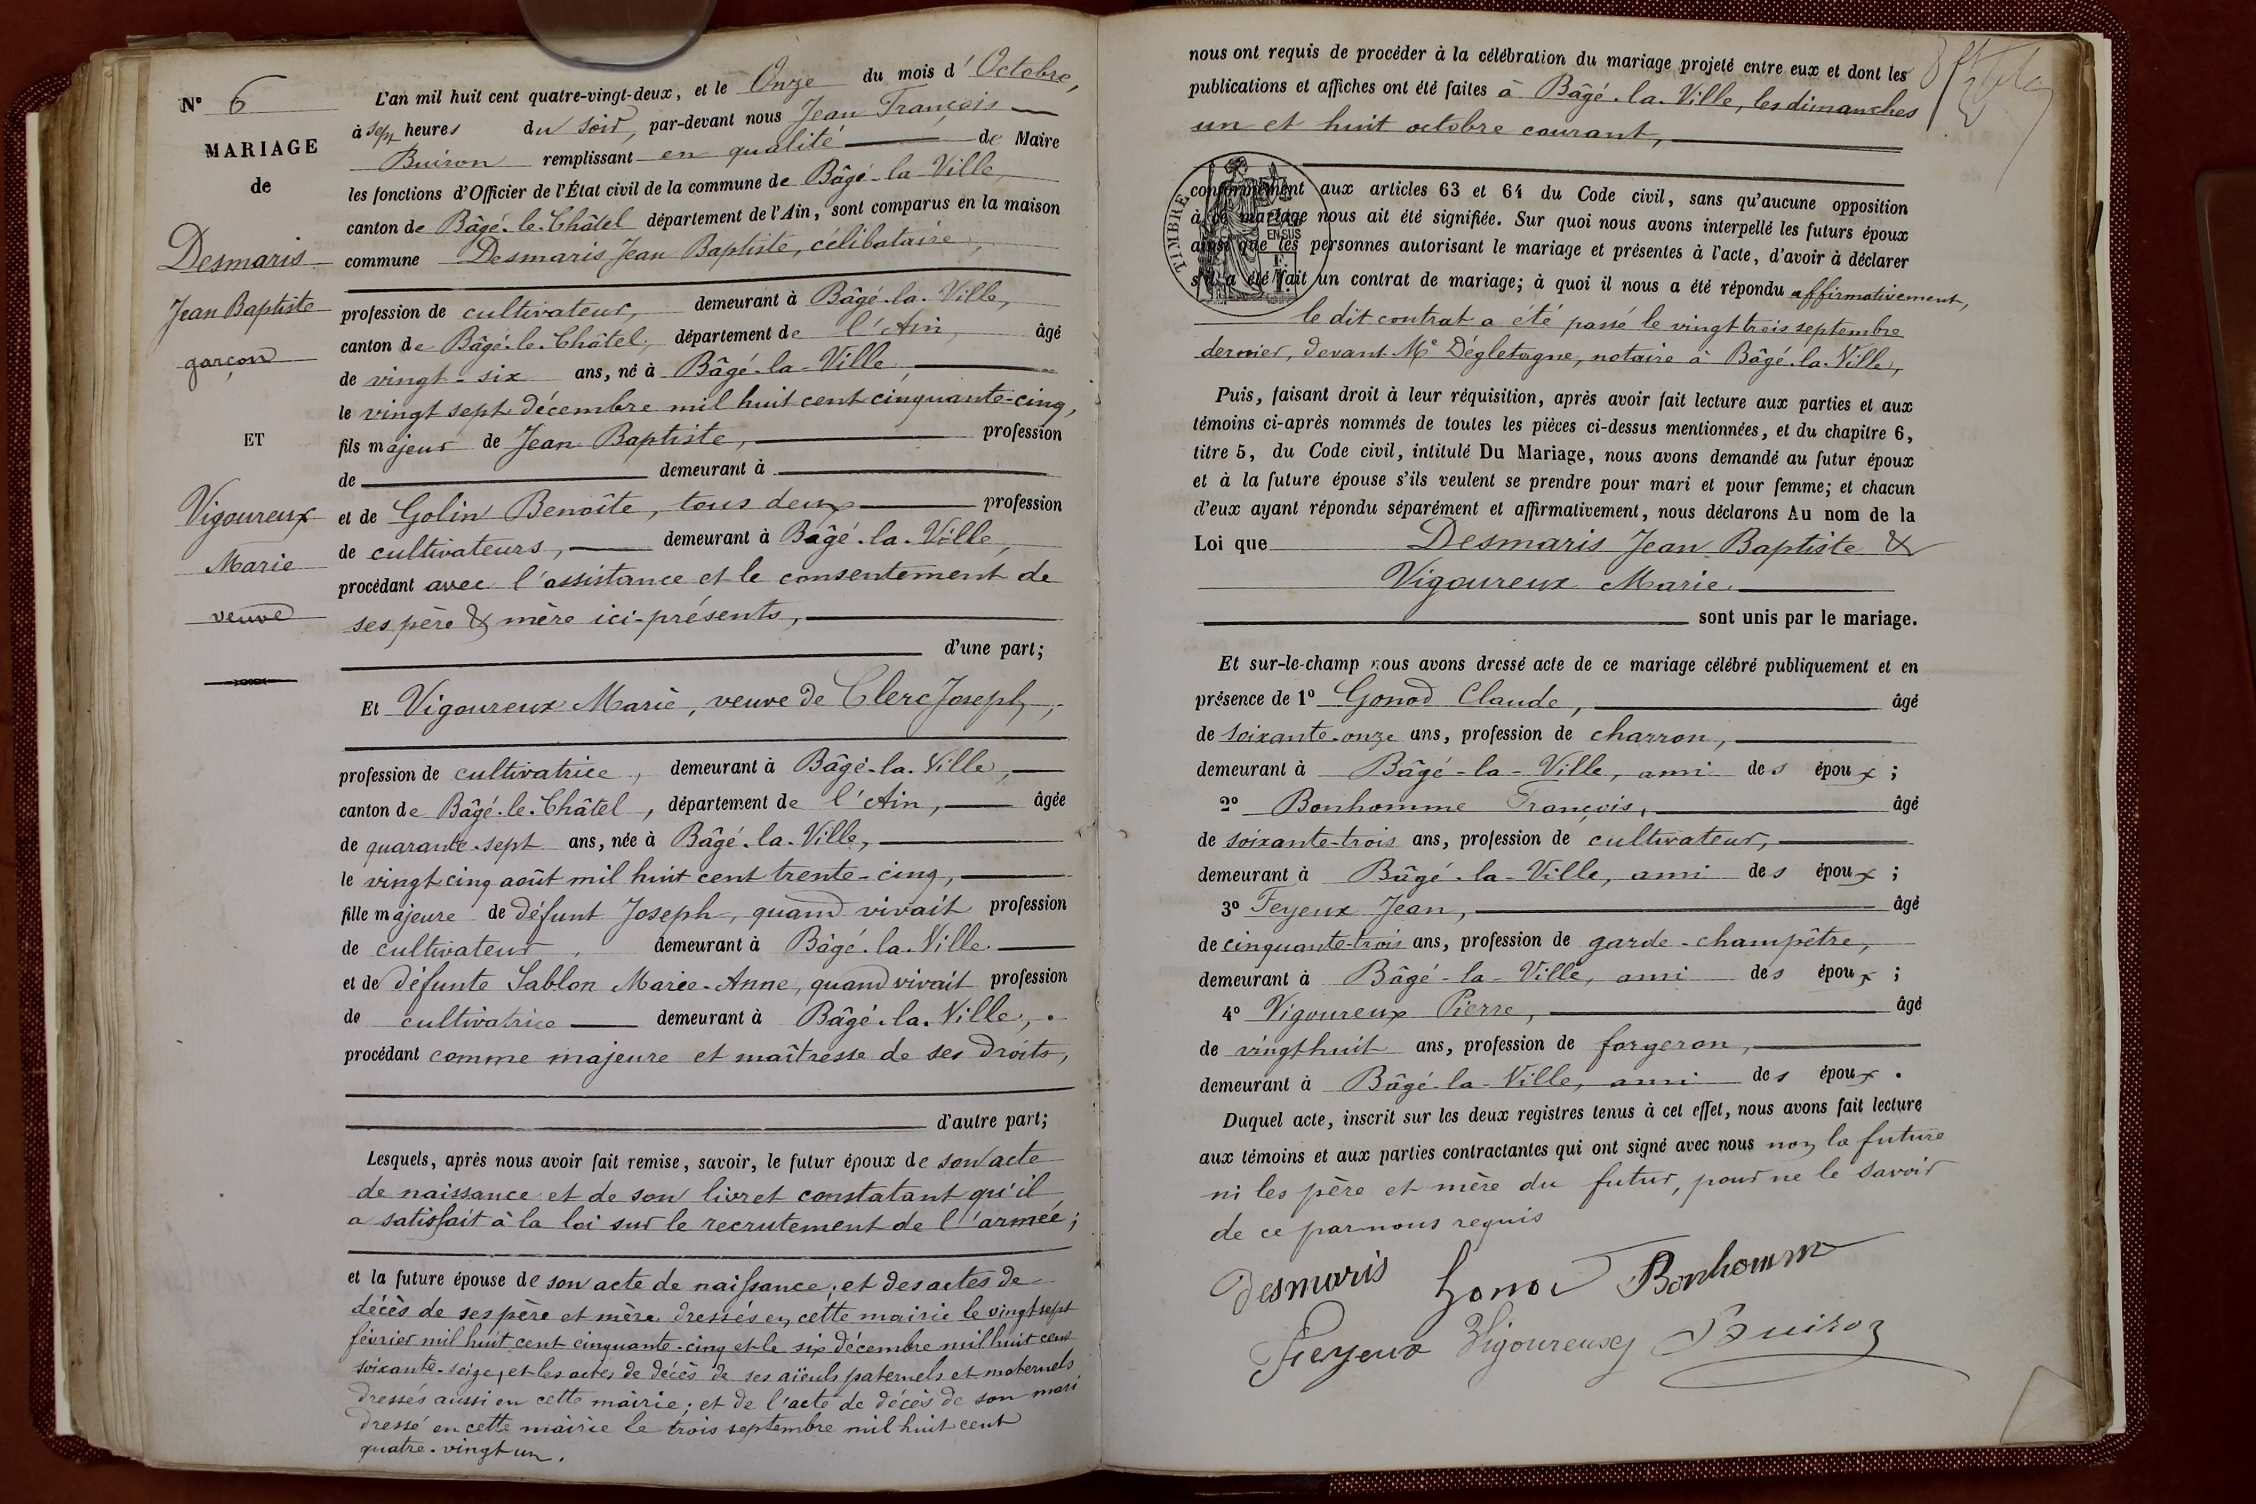 N° 6
MARIAGE
de
Desmaris
Jean Baptiste
garçon
ET
Vigoureux
Marie
veuve
L'an mil huit cent quatre-vingt-deux, et le Onze du mois d'Octobre,
à sept heures du soir, par-devant nous Jean François
Buiron remplissant en qualité de Maire
les fonctions d'Officier de l'État civil de la commune de Bâgé-la-Ville,
canton de Bâgé-le-Châtel département de l'Ain, sont comparus en la maison
commune Desmaris Jean Baptiste, célibataire,
profession de cultivateur, demeurant à Bâgé-la-Ville,
canton de Bâgé-le-Châtel, département de l'Ain, âgé
de vingt-six ans, né à Bâgé-la-Ville,
le vingt sept décembre mil huit cent cinquante-cinq,
fils majeur de Jean Baptiste, profession
de demeurant à
et de Golin Benoîte, tous deux profession
de cultivateurs, demeurant à Bâgé-la-Ville,
procédant avec l'assistance et le consentement de
ses père & mère ici-présents,
d'une part;
Et Vigoureux Marie, veuve de Clerc Joseph,
profession de cultivatrice, demeurant à Bâgé-la-Ville,
canton de Bâgé-le-Châtel, département de l'Ain, âgée
de quarante-sept ans, née à Bâgé-la-Ville,
le vingt cinq août mil huit cent trente-cinq,
fille majeure de défunt Joseph, quand vivait profession
de cultivateur, demeurant à Bâgé-la-Ville
et de défunte Sablon Marie-Anne, quand vivait profession
de cultivatrice demeurant à Bâgé-la-Ville,
procédant comme majeure et maîtresse de ses droits,
d'autre part;
Lesquels, après nous avoir fait remise, savoir, le futur époux de son acte
de naissance et de son livret constatant qu'il
a satisfait à la loi sur le recrutement de l'armée;
et la future épouse de son acte de naissance; et des actes de
décès de ses père et mère dressés en cette mairie le vingt sept
février mil huit cent cinquante-cinq et le six décembre mil huit cent
soixante-seize, et les actes de décès de ses aïeuls paternels et maternels
dressés aussi en cette mairie; et de l'acte de décès de son mari
dressé en cette mairie le trois septembre mil huit cent
quatre-vingt un.
nous ont requis de procéder à la célébration du mariage projeté entre eux et dont les
publications et affiches ont été faites à Bâgé-la-Ville, les dimanches
un et huit octobre courant,
TIMBRE
conformément aux articles 63 et 64 du Code civil, sans qu'aucune opposition
à ce mariage nous ait été signifiée. Sur quoi nous avons interpellé les futurs époux
ainsi que les personnes autorisant le mariage et présentes à l'acte, d'avoir à déclarer
s'il a été fait un contrat de mariage; à quoi il nous a été répondu affirmativement,
le dit contrat a été passé le vingt trois septembre
dernier, devant Me Dégletagne, notaire à Bâgé-la-Ville,
Puis, faisant droit à leur réquisition, après avoir fait lecture aux parties et aux
témoins ci-après nommés de toutes les pièces ci-dessus mentionnées, et du chapitre 6,
titre 5, du Code civil, intitulé Du Mariage, nous avons demandé au futur époux
et à la future épouse s'ils veulent se prendre pour mari et pour femme; et chacun
d'eux ayant répondu séparément et affirmativement, nous déclarons Au nom de la
Loi que Desmaris Jean Baptiste &
Vigoureux Marie
sont unis par le mariage.
Et sur-le-champ nous avons dressé acte de ce mariage célébré publiquement et en
présence de 1° Gonod Claude, âgé
de soixante-onze ans, profession de charron,
demeurant à Bâgé-la-Ville, ami des époux;
2° Bonhomme François, âgé
de soixante-trois ans, profession de cultivateur,
demeurant à Bâgé-la-Ville, ami des époux;
3° Feyeux Jean, âgé
de cinquante-trois ans, profession de garde-champêtre,
demeurant à Bâgé-la-Ville, ami des époux;
4° Vigoureux Pierre, âgé
de vingt huit ans, profession de forgeron,
demeurant à Bâgé-la-Ville, ami des époux.
Duquel acte, inscrit sur les deux registres tenus à cet effet, nous avons fait lecture
aux témoins et aux parties contractantes qui ont signé avec nous non la future
ni les père et mère du futur, pour ne le savoir
de ce par nous requis
Desmaris Gonod Bonhomme
Feyeux Vigoureux Buiron